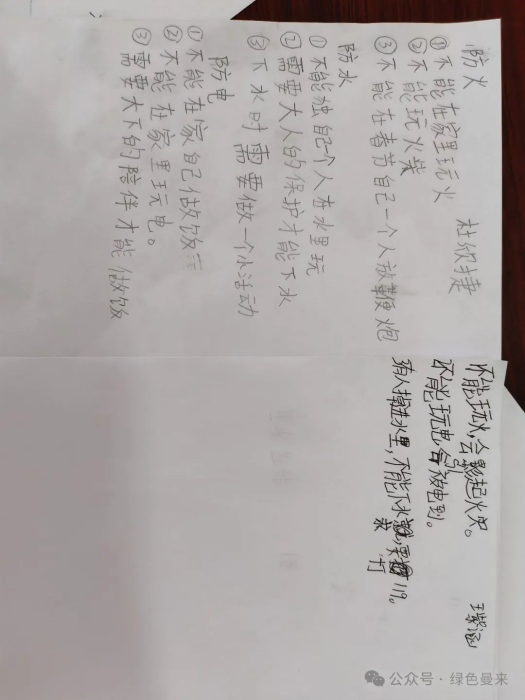 防火
杜欣捷
①不能在家里玩火
②不能玩火柴
③不能在春节自己一个人放鞭炮
防水
①不能独自己一个人去水里玩
②需要大人的保护才能下水
③下水时需要做一个小活动
防电
①不能在家自己做饭
②不能在家里玩电。
③需要大下的陪伴才能做饭
不能玩火,会引起火灾。
不能玩电,会被电到。
有人掉进水里,不能下水救,要打119。
公众号·绿色曼来